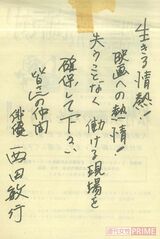 生きる情熱!
映画への熱情!
失うことなく働ける現場を
確保して下さい
皆さんの仲間
俳優 西田敏行
週刊女性PRIME